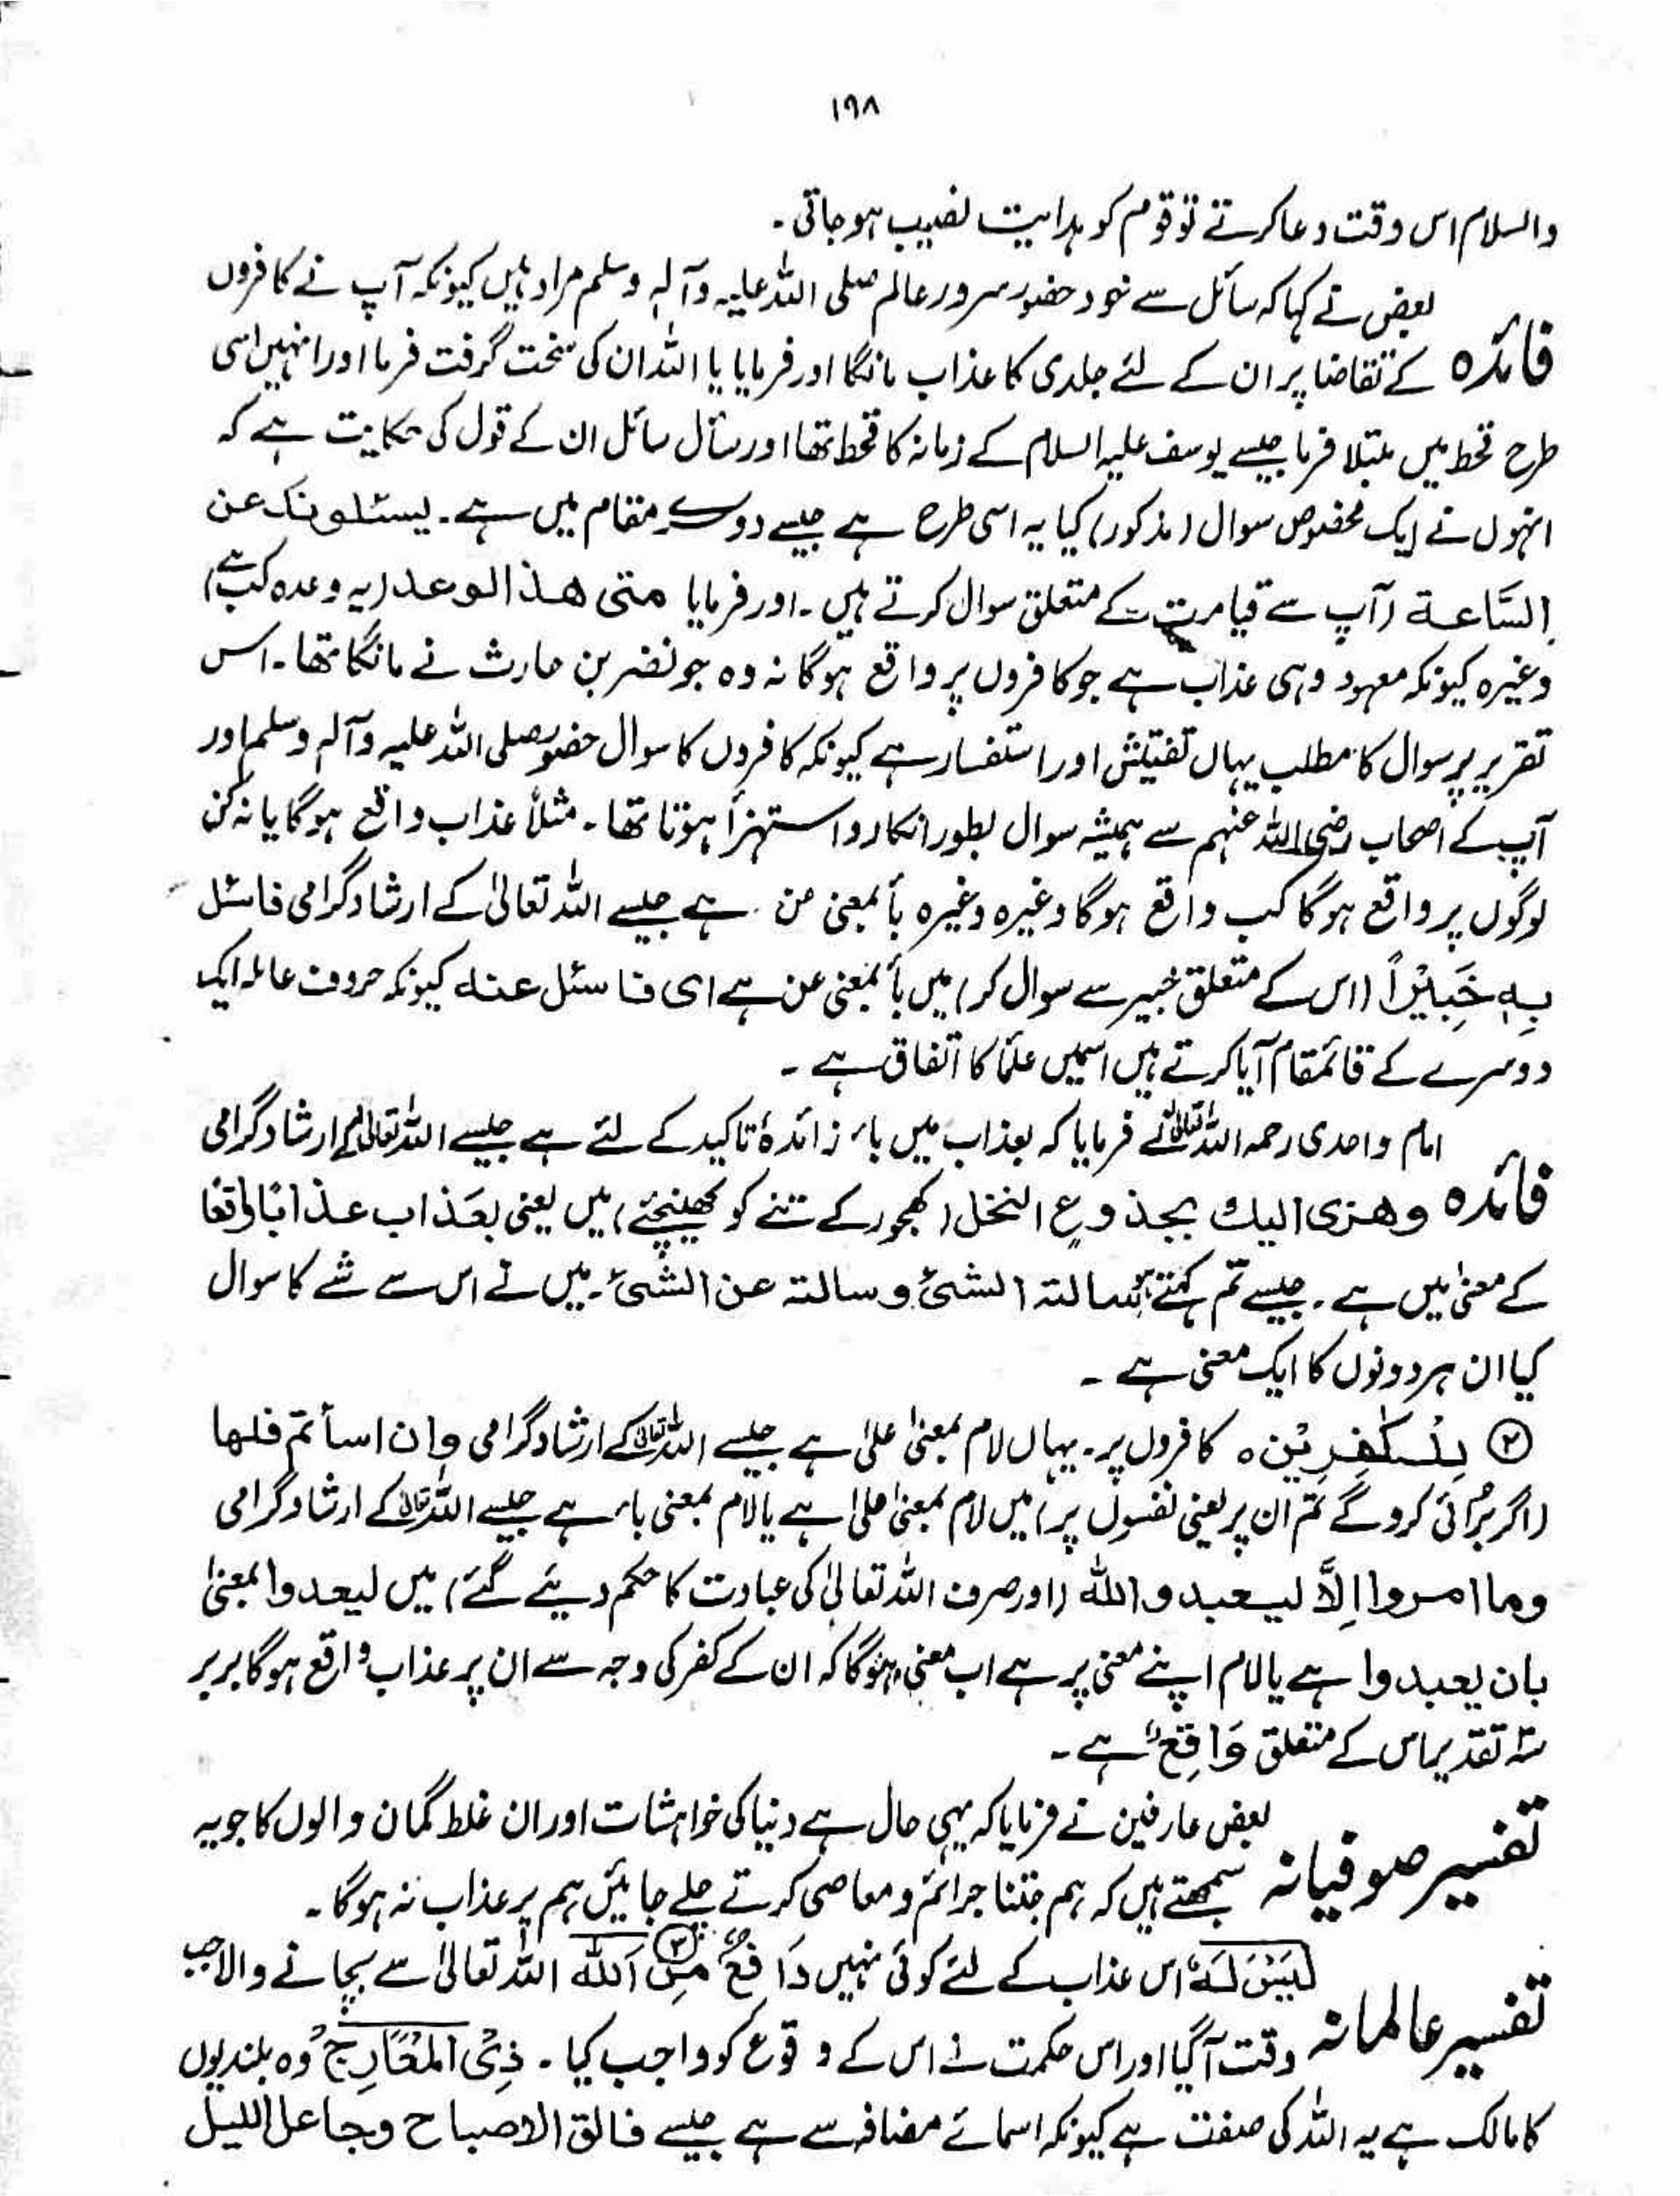 ۱۹۸
والسلام اس وقت دعا کرتے تو قوم کو ہدایت نصیب ہو جاتی ۔
بعض نے کہا کہ سائل سے خود حضور سرور عالم صلی اللہ علیہ وآلہٖ وسلم مراد ہیں کیونکہ آپ نے کافروں
فائدہ کے تقاضا پر ان کے لئے جلدی کا عذاب مانگا اور فرمایا یا اللہ ان کی سخت گرفت فرما اور انہیں اسی
طرح قحط میں مبتلا فرما جیسے یوسف علیہ السلام کے زمانہ کا قحط تھا اور سأل سائل ان کے قول کی حکایت ہے کہ
انہوں نے ایک مخصوص سوال (مذکور) کیا یہ اسی طرح ہے جیسے دوسرے مقام میں ہے ۔ یسئلونک عن
الساعۃ (آپ سے قیامت کے متعلق سوال کرتے ہیں ۔ اور فرمایا متی ھذا الوعد (یہ وعدہ کب ہے)
وغیرہ کیونکہ معہود وہی عذاب ہے جو کافروں پر واقع ہوگا نہ وہ جو نضر بن حارث نے مانگا تھا ۔ اس
تقریر پر سوال کا مطلب یہاں تفتیش اور استفسار ہے کیونکہ کافروں کا سوال حضور صلی اللہ علیہ وآلہٖ وسلم اور
آپ کے اصحاب رضی اللہ عنہم سے ہمیشہ سوال بطور انکار و استہزأ ہوتا تھا ۔ مثلاً عذاب واقع ہوگا یا نہ کن
لوگوں پر واقع ہوگا کب واقع ہوگا وغیرہ وغیرہ بأ بمعنی عن ہے جیسے اللہ تعالیٰ کے ارشاد گرامی فاسئل
بِہٖ خَبِیْرًا (اس کے متعلق خبیر سے سوال کر) میں بأ بمعنی عن ہے ای فاسئل عنہ کیونکہ حروف عاملہ ایک
دوسرے کے قائمقام آیا کرتے ہیں اسمیں علمأ کا اتفاق ہے ۔
امام واحدی رحمہ اللہ تعالیٰ نے فرمایا کہ بعذاب میں باء زائدہ تاکید کے لئے ہے جیسے اللہ تعالیٰ کے ارشاد گرامی
فائدہ وھزی الیك بجذوع النخل (کھجور کے تنے کو کھینچئے) میں یعنی بعَذاب عذابًا واقعًا
کے معنیٰ میں ہے ۔ جیسے تم کہتے ہو سالتہ الشئ وسالتہ عن الشئ ۔ میں نے اس سے شے کا سوال
کیا ان ہر دونوں کا ایک معنی ہے ۔
② لِلْکٰفِرِیْنَ ۰ کافروں پر ۔ یہاں لام بمعنیٰ علیٰ ہے جیسے اللہ تعالیٰ کے ارشاد گرامی وان اسأتم فلھا
(اگر برائی کرو گے تم ان پر یعنی نفسوں پر) میں لام بمعنیٰ علیٰ ہے یا لام بمعنی باء ہے جیسے اللہ تعالیٰ کے ارشاد گرامی
وما امروا اِلَّا لیعبدواللہ (اور صرف اللہ تعالیٰ کی عبادت کا حکم دیئے گئے) میں لیعدوا بمعنیٰ
بان یعبدوا ہے یا لام اپنے معنی پر ہے اب معنی ہوگا کہ ان کے کفر کی وجہ سے ان پر عذاب واقع ہوگا بریر
تقدیر اس کے متعلق وَاقِعٌ ہے ۔
بعض عارفین نے فرمایا کہ یہی حال ہے دنیا کی خواہشات اور ان غلط گمان والوں کا جو یہ
تفسیر صوفیانہ سمجھتے ہیں کہ ہم جتنا جرائم و معاصی کرتے چلے جائیں ہم پر عذاب نہ ہوگا ۔
لَیْسَ لَہٗ اس عذاب کے لئے کوئی نہیں دَافِعٌ ② مِّنَ اللّٰہِ اللہ تعالیٰ سے بچانے والا جب
تفسیر عالمانہ وقت آگیا اور اس حکمت نے اس کے وقوع کو واجب کیا ۔ ذِی الْمَعَارِجِ وہ بلندیوں
کا مالک ہے یہ اللہ کی صفت ہے کیونکہ اسمائے مضافہ سے ہے جیسے فالق الاصباح وجاعل اللیل